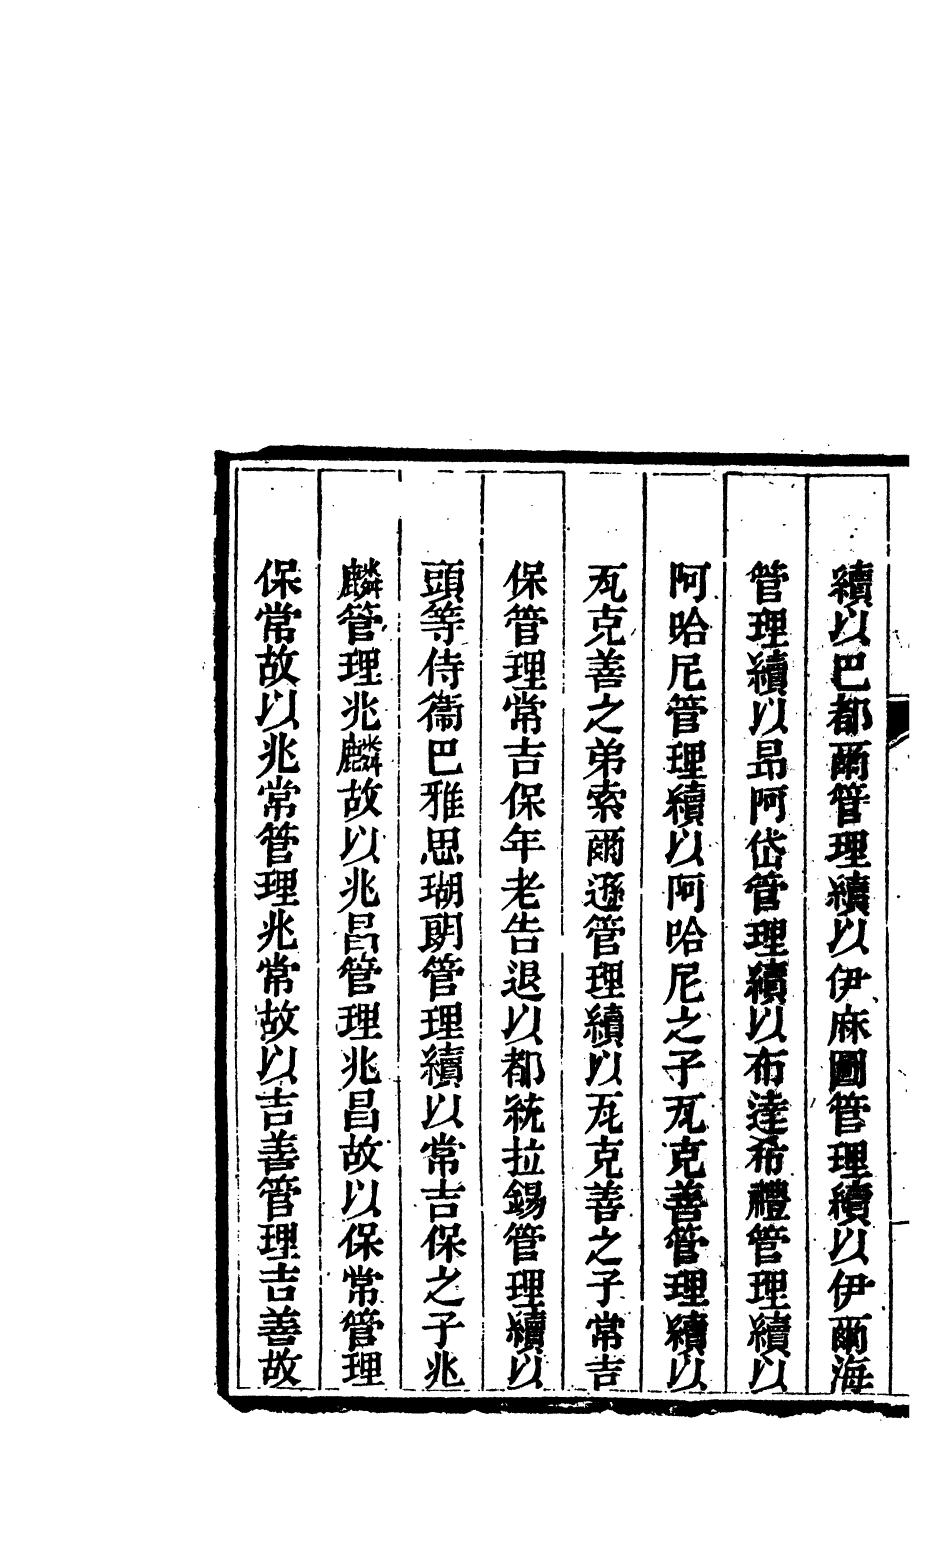 續以巴都爾管理續以伊麻圖管理續以伊爾海
管理續以昂阿岱管理續以布達希禮管理續以
阿哈尼管理續以阿哈尼之子瓦克善管理續以
瓦克善之弟索爾遜管理續以瓦克善之子常吉
保管理常吉保年老告退以都統拉錫管理續以
頭等侍衞巴雅思瑚朗管理續以常吉保之子兆
麟管理兆麟故以兆昌管理兆昌故以保常管理
保常故以兆常管理兆常故以吉善管理吉善故